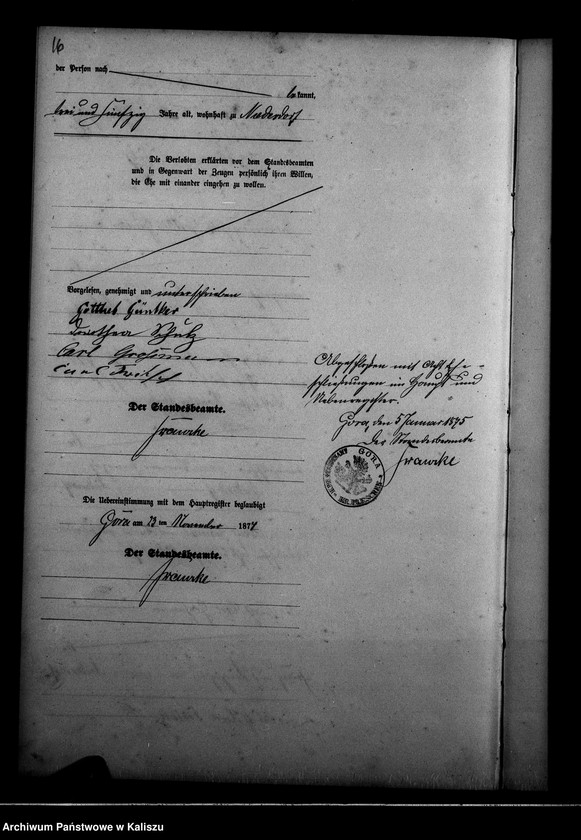 16
der Person nach
bekannt,
drei und fünfzig Jahre alt, wohnhaft zu Niederdorf
Die Verlobten erklärten vor dem Standesbeamten
und in Gegenwart der Zeugen persönlich ihren Willen,
die Ehe mit einander eingehen zu wollen.
Vorgelesen, genehmigt und unterschrieben
Gottlieb Günther
Dorothea Schulz
Carl
Carl
Der Standesbeamte.
Die Uebereinstimmung mit dem Hauptregister beglaubigt
Gora am 23 ten November 1874
Der Standesbeamte.
Abgeschlossen mit Acht Ehe-
schließungen im Haupt und
Nebenregister.
Gora, den 5 Januar 1875
Der Standesbeamte
GORA
Archiwum Państwowe w Kaliszu